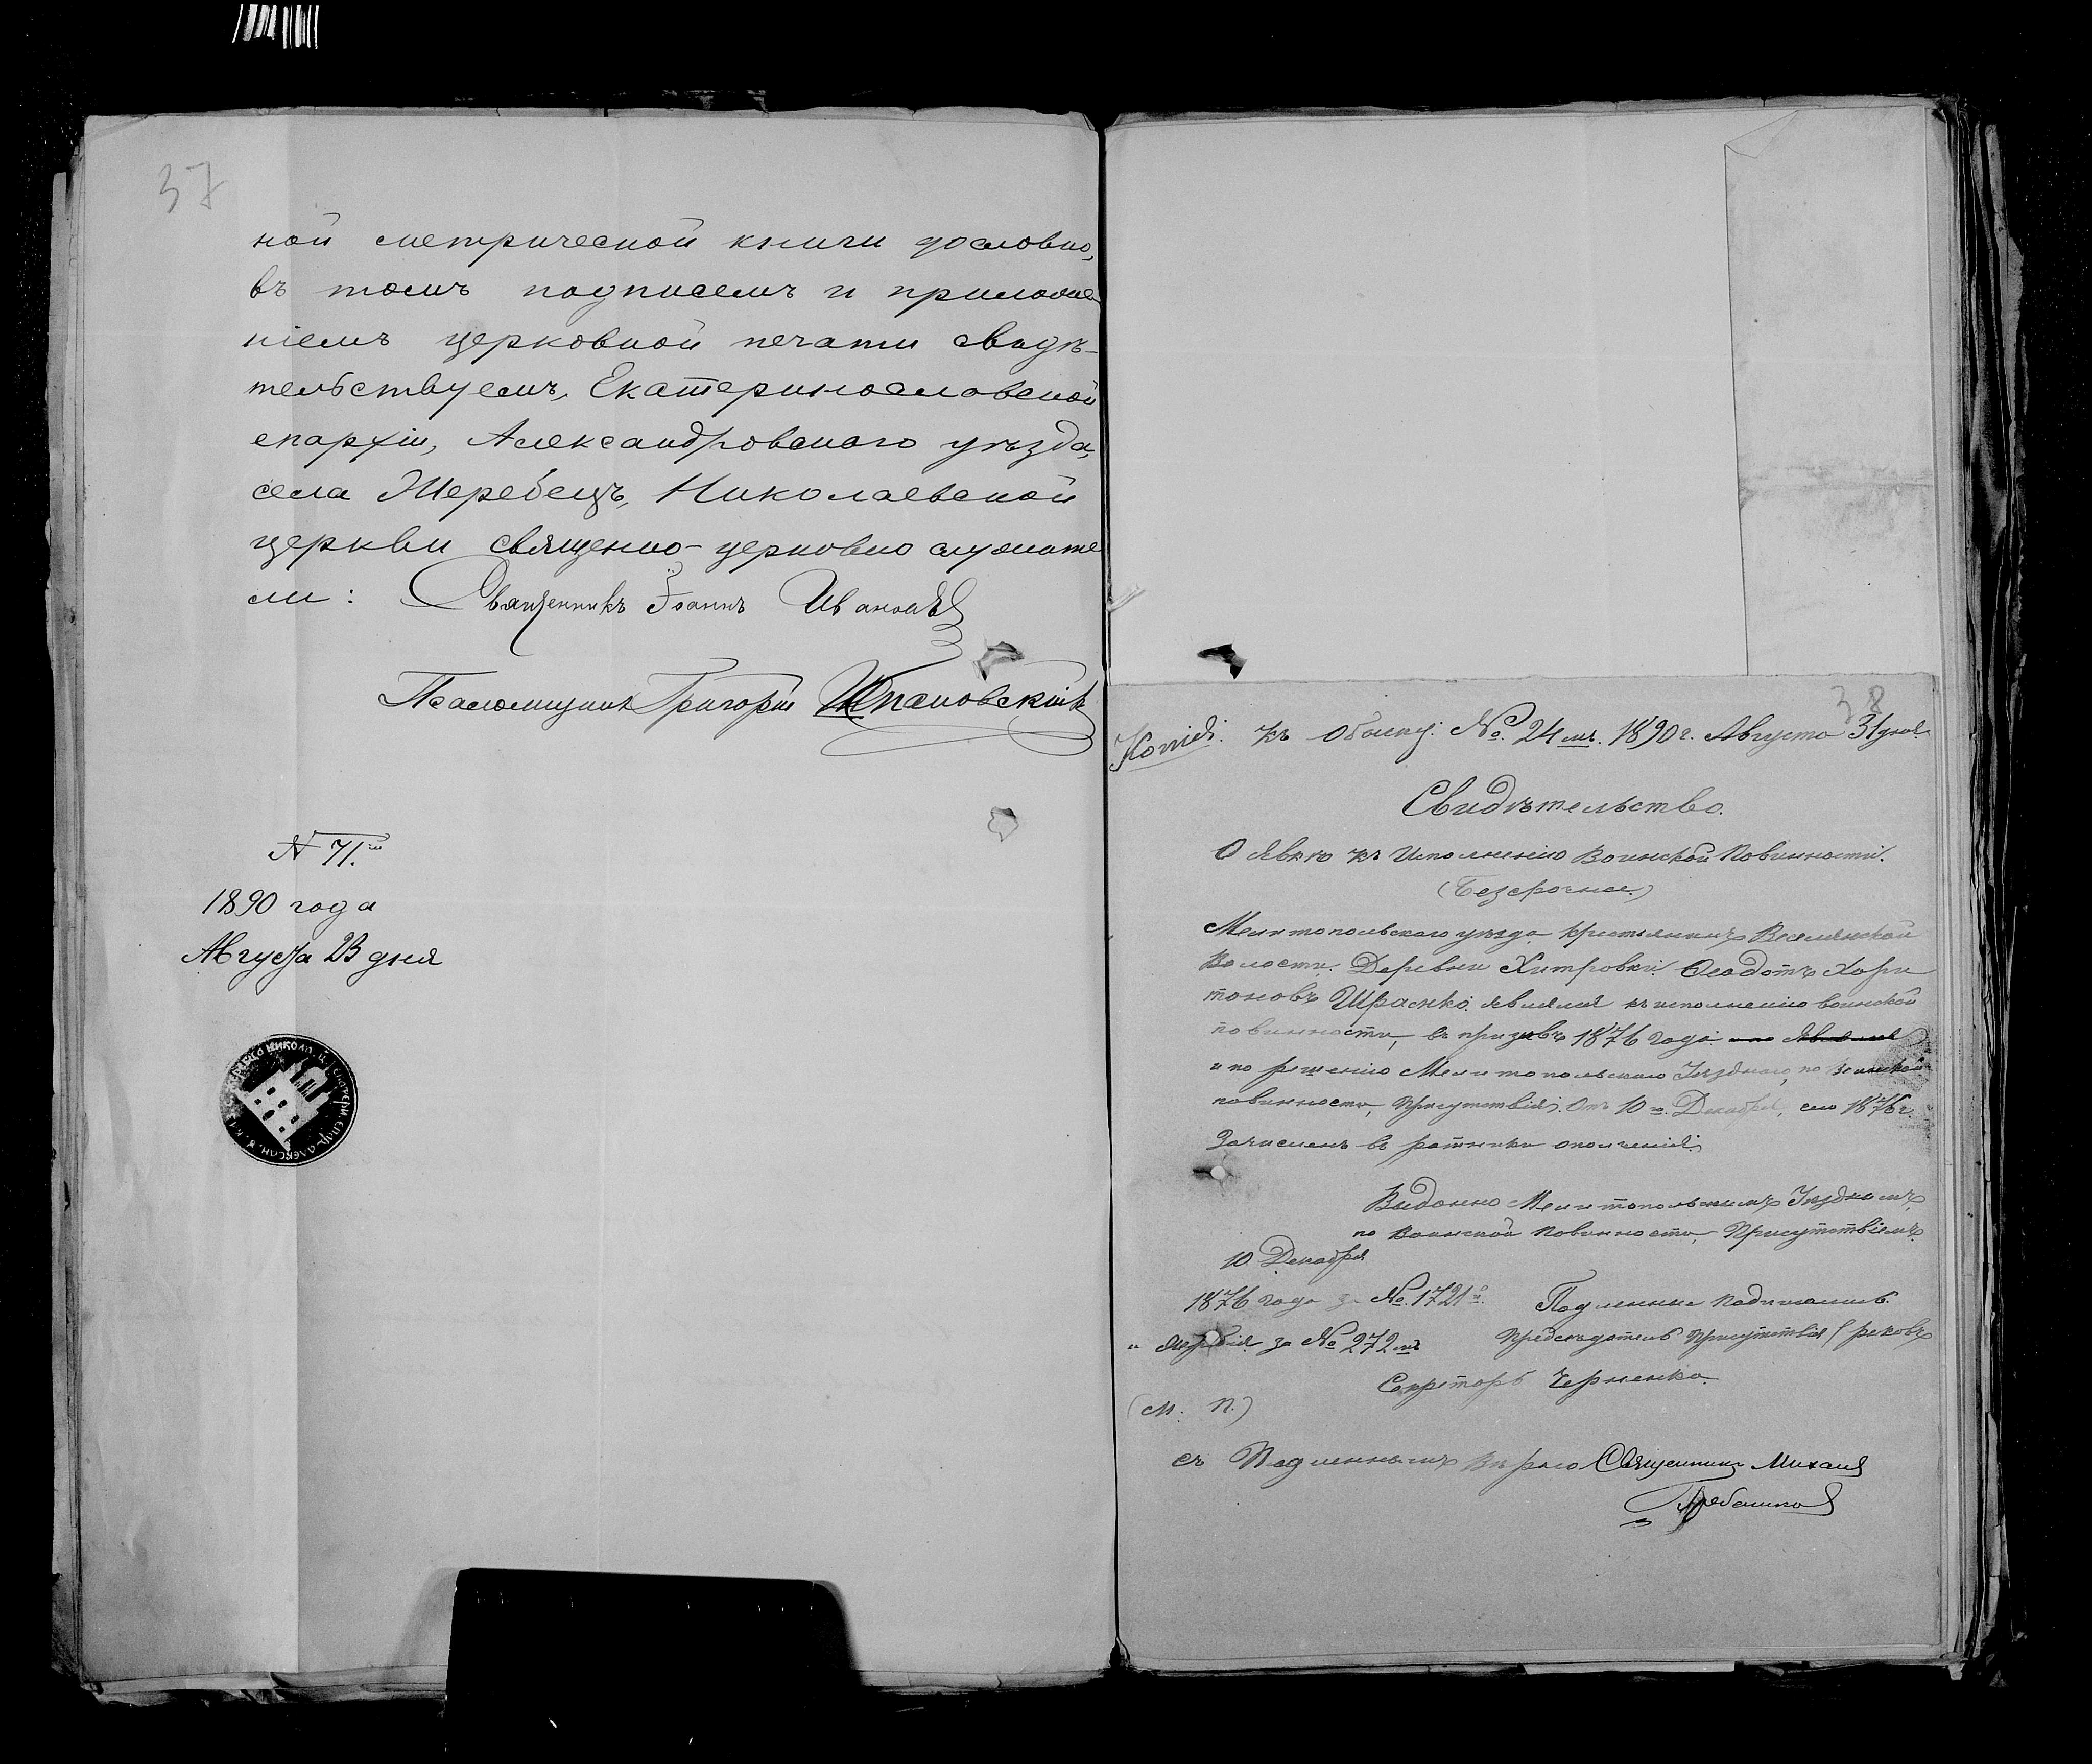 37
ной метрической книги дословно,
въ томъ подписемъ и приложе
ніемъ церковной печати свидѣ-
тельствуемъ, Екатеринославской
епархіи, Александровскаго уѣзда,
села Жеребецъ, Николаевской
церкви священно-церковно служите
ли: Священникъ Іоаннъ Ивановъ
Псаломщикъ Григорій
N 71.й
1890 года
Августа 23 дня
38
Копія. къ Обыску № 24 мъ. 1890 г. Августа 31 дня
Свидѣтельство.
О явкѣ къ Исполненію Воинской Повинности.
(Безсрочное.)
Мелитопольскаго уѣзда крестьянинъ Веселянской
Волости. Деревни Хитровки Ѳеодотъ Хари
тоновъ явился къ исполненію воинской
повинности, въ призывъ 1876 года
и по решенію Мелитопольскаго Уѣзднаго, по Воинской
повинности, Присутствія. Отъ 10 го. Декабря, 1876 г.
Зачисленъ въ ратники ополченія.
Выданно Мелитопольскимъ Уѣзднымъ,
по Воинской Повинности, Присутствіемъ.
10 Декабря
1876 года за №. 1721 й. Подлинные подписали.
за № 272 мъ Предсѣдатель Присутствія
Секретарь Черненко.
(М. П.)
съ Подленнымъ Вѣрно Священникъ Михаил